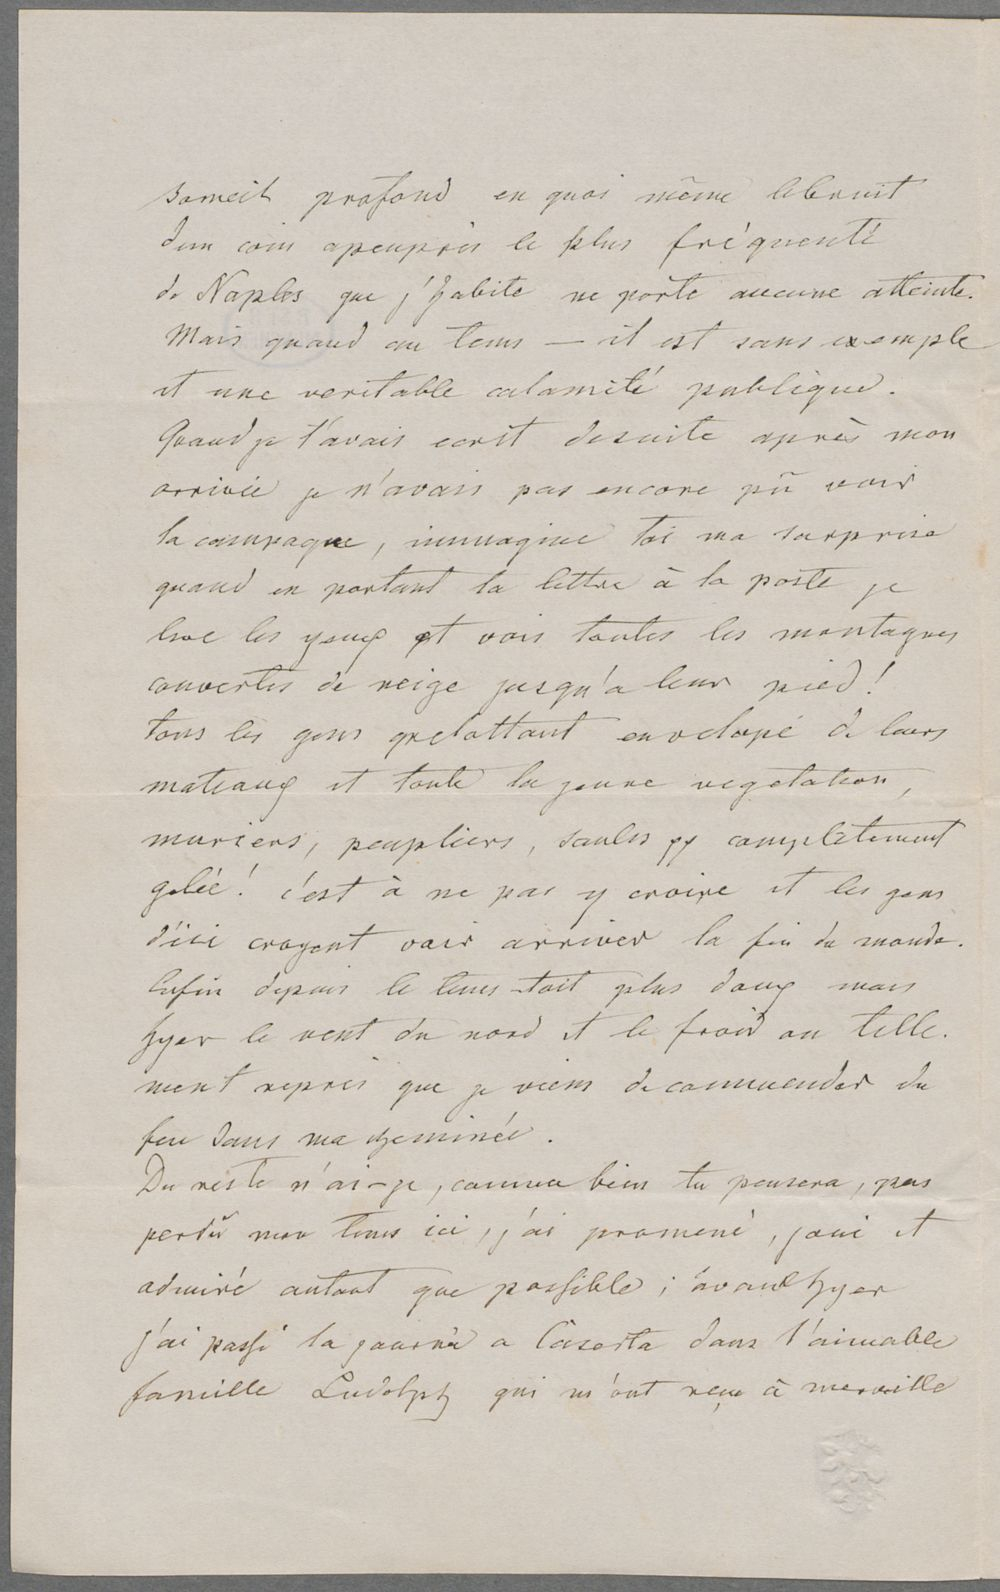 someil profond en quoi même lebruit
dun coin apeuprès le plus fréquenté
de Naples que j'habite ne porte aucune atteinte.
Mais quand au tems — il est sans exemple
et une veritable calamité publique.
Quand je t'avais ecrit desuite après mon
arrivée je n'avais pas encore pû voir
la campagne, immagine toi ma surprise
quand en portant la lettre à la poste je
leve les yeux et vois toutes les montagnes
couvertes de neige jusqu'a leur pied!
tous les gens grelottant envelopé de leurs
mateaux et toute la jeune vegetation,
muriers, peupliers, saules pp completement
gelée! c'est à ne pas y croire et les gens
d'ici croyent voir arriver la fin du monde.
Enfin depuis le tems -tait plus doux mais
hyer le vent du nord et le froid on telle-
ment repris que je viens decommender du
feu dans ma cheminée.
Du reste n'ai-je, comme bien tu pensera, pas
perdû mon tems ici, j'ai promené, joui et
admiré autant que possible; avant hyer
j'ai passé la journée a Caserta dans l'aimable
famille Ludolph qui m'ont reçu à merveille